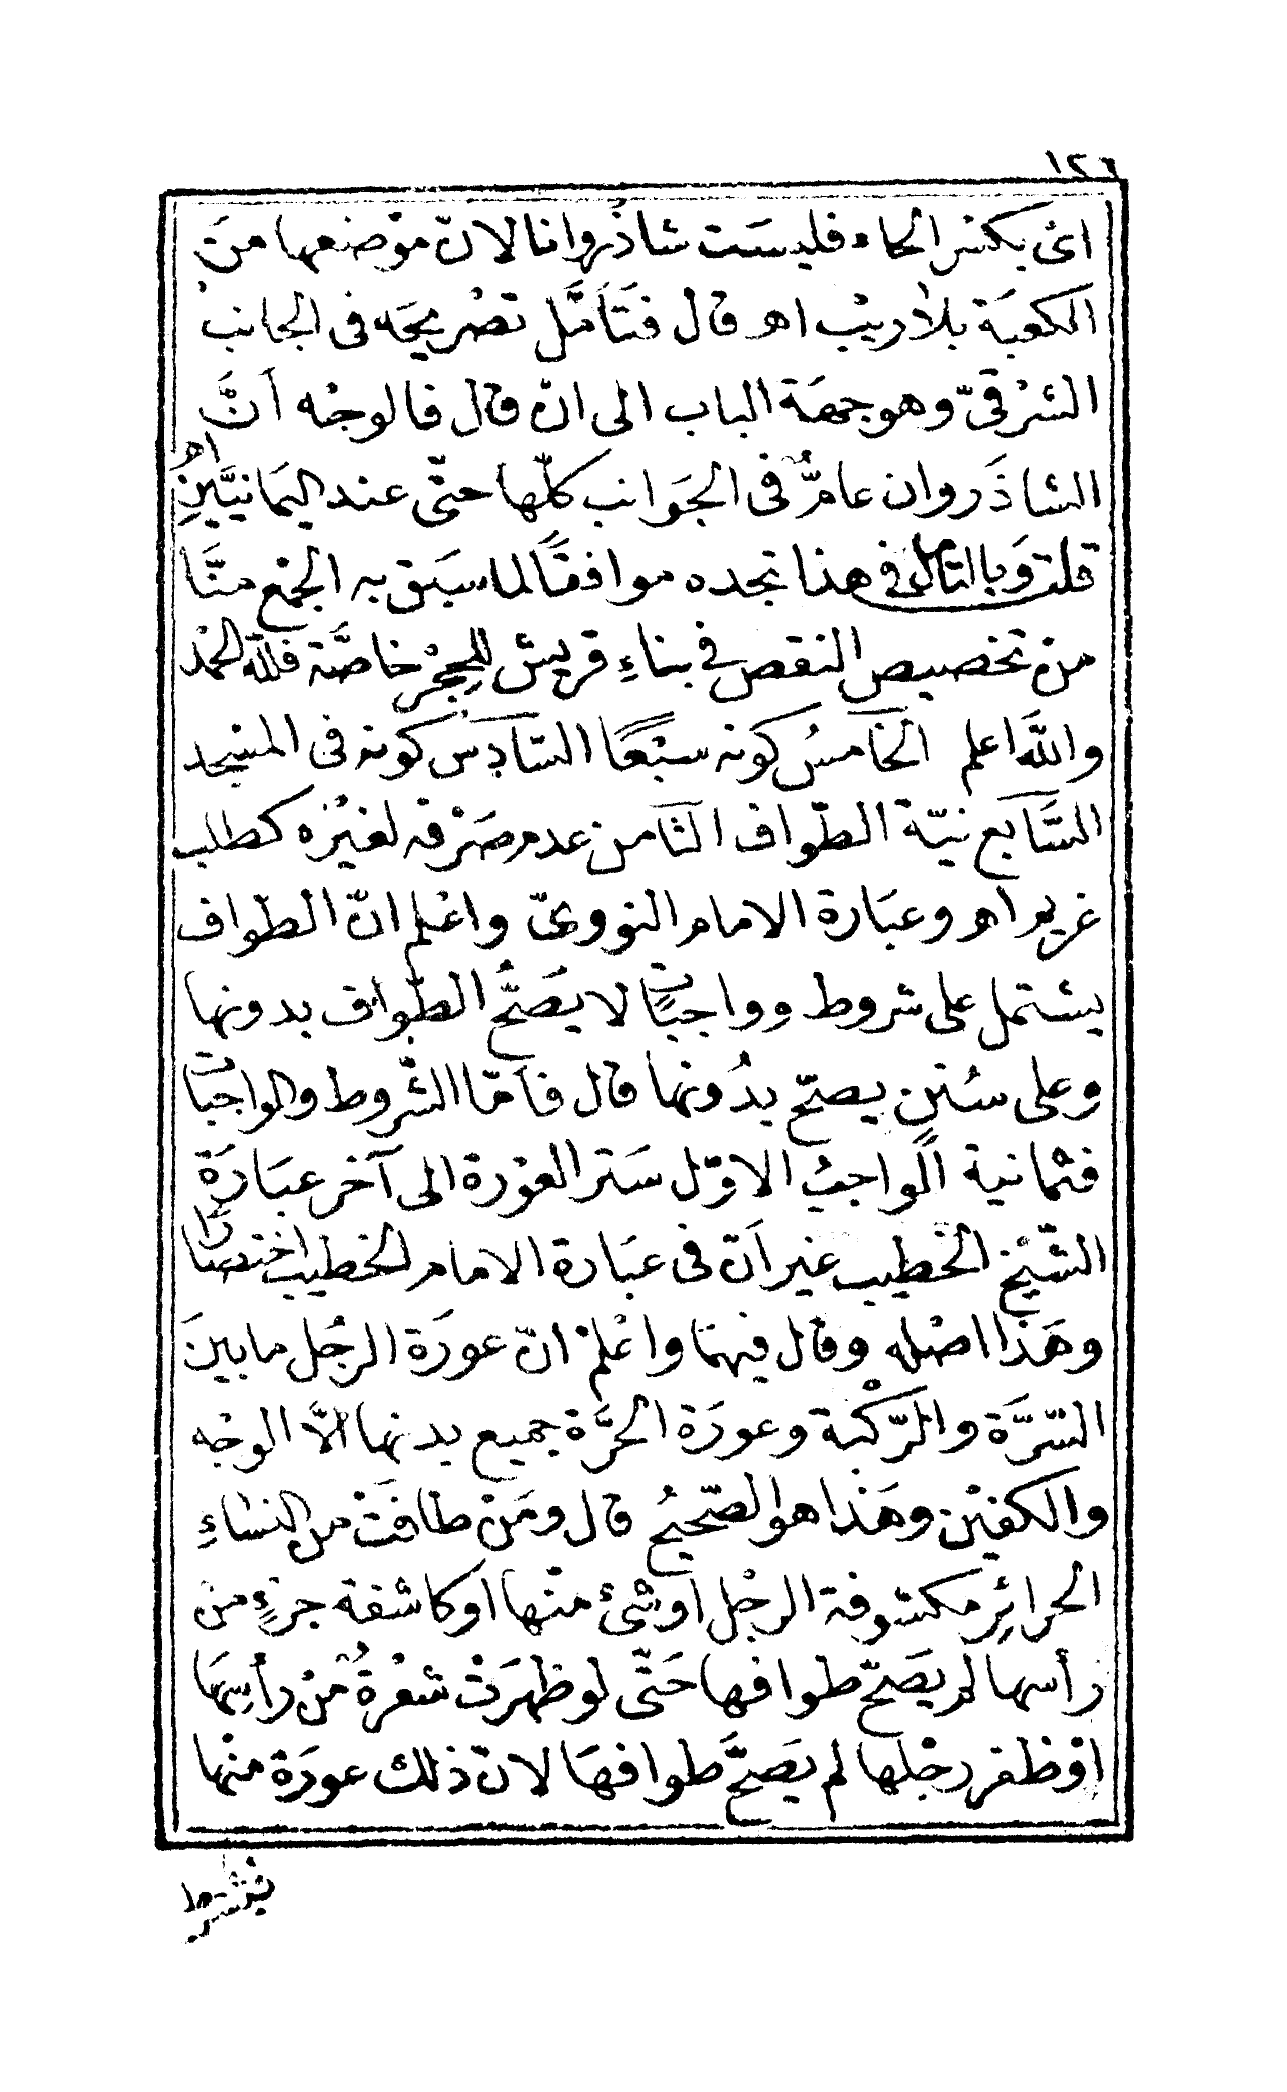 ١٢٦
اى بكسر الحاء فليسَت شاذَروانا لانّ موْضعها منَ
الكعبَة بلا ريْب اهـ قال فتَأمَّل تصْريحَه فى الجانب
الشرْقىّ وهو جهَة الباب الى انّ قال فالوجْه أنَّ
الشاذَروان عامٌّ فى الجَوانب كلّها حتّى عند اليمَانيَّيْنِ اهـ
قلت وَبالتأمل فى هذا تجده موافقًا لما سبَق به الجمْع منَّا
من تخصيص النقص فى بناءِ قريش للحِجْر خاصَّة فللّه الحمْد
واللّه اعلم الخامسُ كونه سبْعًا السّادِسُ كونه فى المسْجد
السَّابع نيّة الطّواف الثامن عدم صَرْفه لغيْره كطلب
غريم اهـ وعبَارة الامام النووىّ واعْلم انّ الطواف
يشتمل على شروط وواجبَات لا يصَحُّ الطّواف بدونها
وعلى سُنن يصحّ بدُونها قال فأمّا الشّروط والواجبَات
فثمانية الواجبُ الاوّل سَتر العوْرة الى آخر عبَارَة
الشّيْخ الخطيب غير اَنّ فى عبَارة الامام الخطيب اختصارًا
وهَذا اصْله وقال فيهمَا واعْلمْ انّ عورَة الرجُل ما بينَ
السّرَّة والرّكْبة وعورَة الحرَّة جميع بدنها الاّ الوجْه
والكفيْن وهَذا هو الصّحيحُ قال ومَنْ طافَتْ من النسَاءِ
الحرائِر مكشوفة الرجْل اوْ شىْءٌ منْها او كاشفة جزءٍ من
رأسها لم يَصَحّ طوافها حَتّى لو ظهرَتْ شعْرةٌ منْ رأسِهَا
اوْ ظفر رجْلها لم يَصحَّ طوافهَا لانّ ذلك عورَة منْها
يشترط